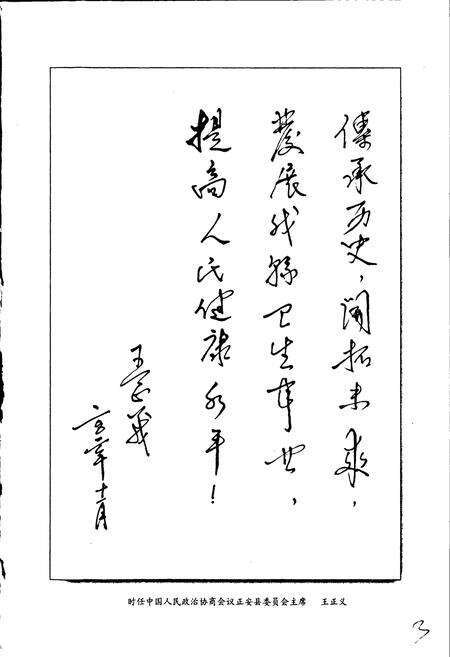 傳承历史，開拓未來，
發展我縣卫生事业，
提高人民健康水平！
王正義
十一月
时任中国人民政治协商会议正安县委员会主席 王正义
3